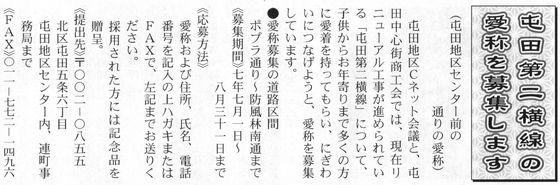 屯田第二横線の
愛称を募集します
(屯田地区センター前の
通りの愛称)
屯田地区Cネット会議と、屯
田中心街商工会では、現在リ
ニューアル工事が進められてい
る「屯田第二横線」について、
子供からお年寄りまで多くの方
に愛着を持ってもらい、にぎわ
いにつなげようと、愛称を募集
しています。
●愛称募集の道路区間
ポプラ通り～防風林南通まで
《募集期間》七年七月一日～
八月三十一日まで
《応募方法》
愛称および住所、氏名、電話
番号を記入の上ハガキまたは
FAXで、左記までお送りく
ださい。
採用された方には記念品を
贈呈。
《提出先》〒〇〇二－〇八五五
北区屯田五条六丁目
屯田地区センター内、連町事
務局まで
《FAX》〇一一－七七二－一四九六